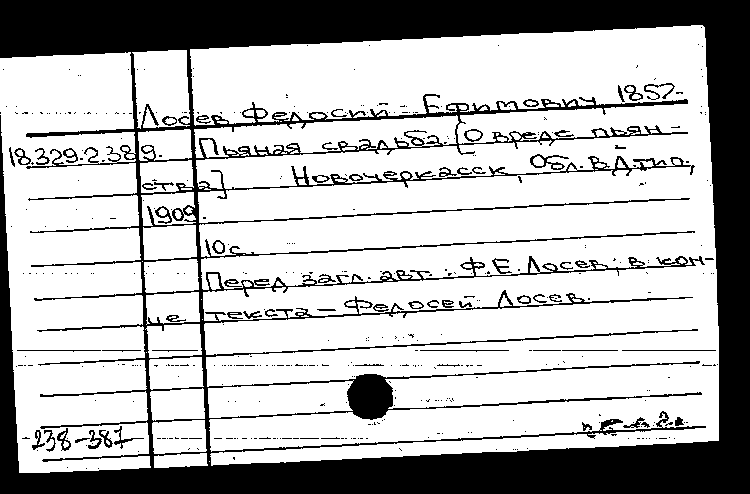 Лосев, Федосий Ефимович, 1857-
18.329.2.389. Пьяная свадьба. [О вреде пьян-
ства] Новочеркасск, Обл. В.Д. тип.,
1909.
10 с.
Перед загл. авт.: Ф.Е. Лосев; в кон-
це текста – Федосей Лосев.
238-387